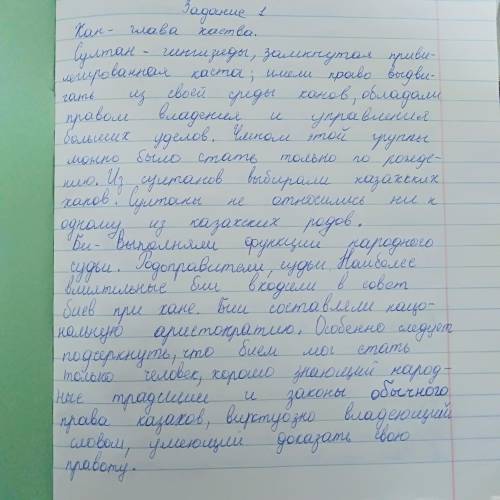 Задание 1
Хан - глава ханства.
Султан - чингизиды, замкнутая приви-
легированная каста; имели право выдви-
гать из своей среды ханов, обладали
правом владения и управления
больших уделов. Членом этой группы
можно было стать только по рожде-
нию. Из султанов выбирали казахских
ханов. Султаны не относились ни к
одному из казахских родов.
Би - Выполняли функции народного
судьи. Родоправители, судьи Наиболее
влиятельные бии входили в совет
биев при хане. Бии составляли нацо-
нальную аристократию. Особенно следует
подчеркнуть, что бием мог стать
только человек, хорошо знающий народ-
ные традиции и законы обычного
права казахов, виртуозно владеющий
словом, умеющий доказать свою
правоту.